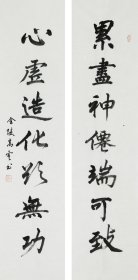 累盡神僊端可致
心虛造化欲無功
金陵馬寶書